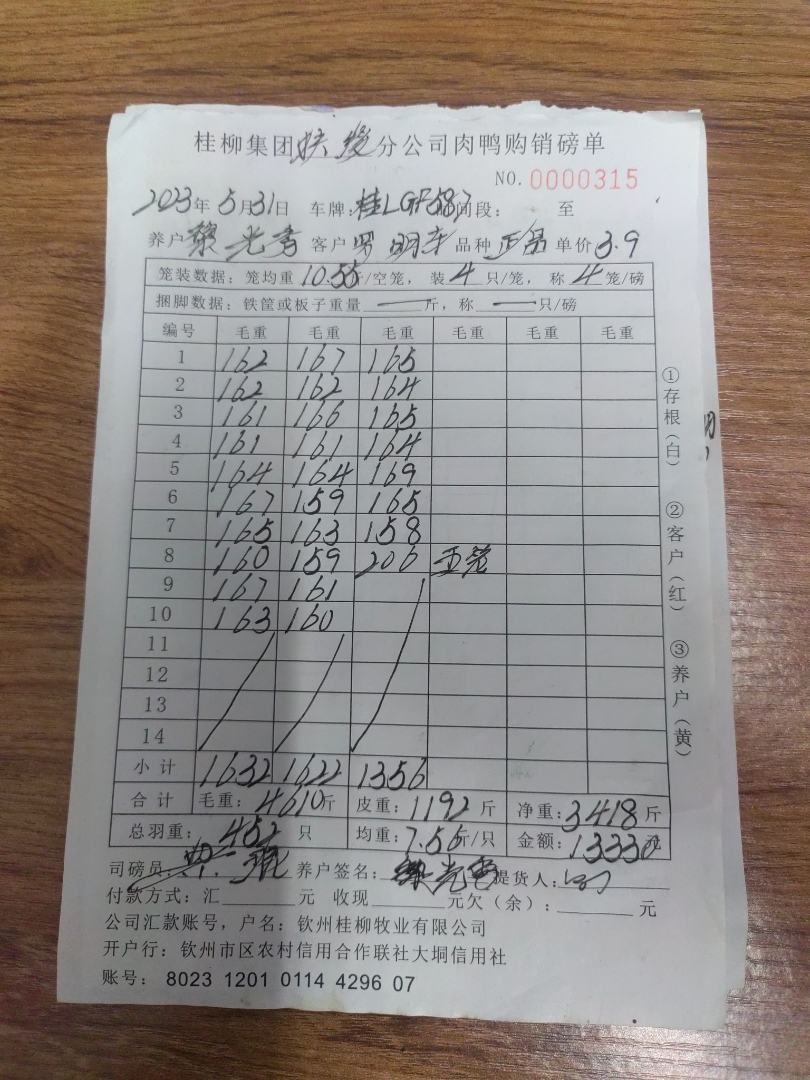 桂柳集团扶绥分公司肉鸭购销磅单
NO. 0000315
2023年5月31日 车牌:桂LGF587 时间段: 至
养户 光秀 客户罗明 品种 单价3.9
笼装数据:笼均重10.55斤/空笼,装4只/笼,称4笼/磅
捆脚数据:铁筐或板子重量—斤,称—只/磅
编号 毛重 毛重 毛重 毛重 毛重 毛重
1 162 167 165
2 162 162 164
3 161 166 165
4 161 161 164
5 164 164 169
6 167 159 165
7 165 163 158
8 160 159 206 五笼
9 167 161
10 163 160
11
12
13
14
小计 1632 1622 1356
合计 毛重:4610斤 皮重:1192斤 净重:3418斤
总羽重:452只 均重:7.56斤/只 金额:13330元
司磅员 养户签名: 光秀 提货人:
付款方式:汇 元 收现 元欠(余): 元
公司汇款账号,户名:钦州桂柳牧业有限公司
开户行:钦州市区农村信用合作联社大垌信用社
账号: 8023 1201 0114 4296 07
①存根(白) ②客户(红) ③养户(黄)